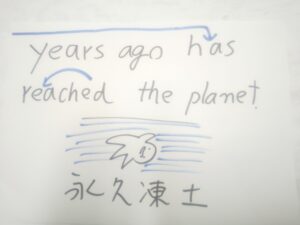 years ago has
reached the planet
永久凍土